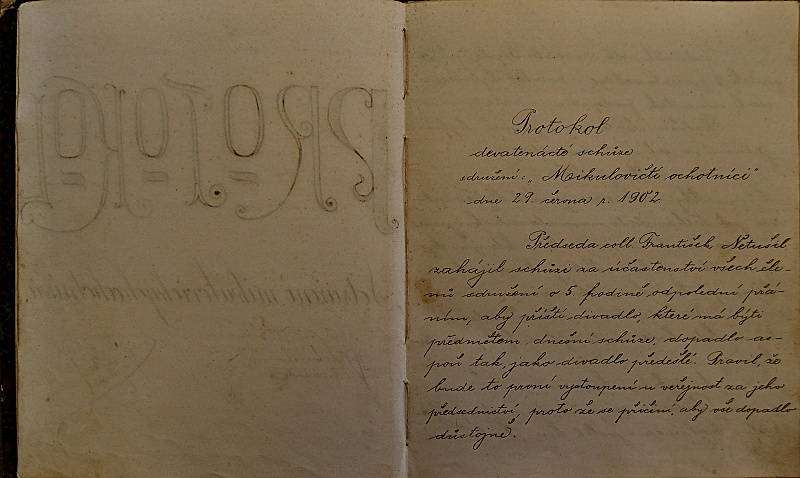 PROTOKOL
Sdružení mikulovických ochotníků.
Protokol
devatenácté schůze
sdružení: „Mikulovičtí ochotníci"
dne 29. června r. 1902.
Předseda coll. František Netušil
zahájil schůzi za účastenství všech čle-
nů sdružení o 5. hodině odpolední přá-
ním, aby příští divadlo, které má býti
předmětem dnešní schůze, dopadlo as-
poň tak, jako divadlo předešlé. Pravil, že
bude to první vystoupení u veřejnost za jeho
předsednictví, proto že se přičiní, aby vše dopadlo
důstojně.